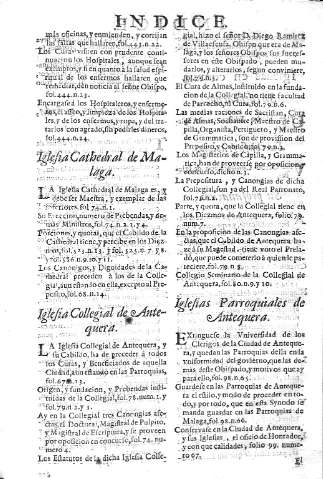 INDICE.
más oficinas, y enmienden, y corrijan
las faltas que hallaren, fol.443.n.22.
Los Curas visiten con prudente conti-
nuacion los Hospitales, aunque sean
exemptos, y si en quanto à la salud espi-
ritual de los enfermos hallaren que
remediar, den noticia al señor Obispo,
fol.444.n.23.
Encargase à los Hospitaleros, y enferme-
ros, el aseo, y limpieza de los Hospita-
les, y de los enfermos, ropa, y del tra-
tarlos con agrado, sin pedirles dineros,
fol.444.n.24.
Iglesia Cathedral de Ma-
laga.
LA Iglesia Cathedral de Malaga es, y
debe ser Maestra, y exemplar de las
inferiores, fol.74.n.1.
Su Ereccion, numero de Prebendas, y de-
màs Ministros, fol.74.n.2.3.4.
Posiciones, y quotas, que el Cabildo de la
Cathedral tiene, y percibe en los Diez-
mos,
Los Canonigos, y Dignidades de la Ca-
thedral preceden à los de la Colle-
gial, aun estando en ella, excepto al Pre-
posito, fol.68.n.14.
Iglesia Collegial de Ante-
quera.
LA Iglesia Collegial de Antequera, y
su Cabildo, ha de preceder à todos
los Curas, y Beneficiados de aquella
Ciudad, aun estando en las Parroquias,
fol.67.n.13.
Origen, y fundacion, y Prebendas insti-
tuidas de la Collegial, fol.78.num.1. y
fol.79.n.2.y 3.
Ay en la Collegial tres Canongias afec-
tas, el Doctoral, Magistral de Pulpito,
y Magistral de Escriptura, y se proveen
por oposicion en concurso, fol.74. nu-
mero 4.
Los Estatutos de la dicha Iglesia Colle-
gial, hizo el señor D. Diego Ramirez
de Villaescusa, Obispo que era de Ma-
laga, y los señores Obispos, sus succes-
sores en este Obispado, pueden mu-
darlos, y alterarlos, segun conviniere,
fol.79.n.5.
El Cura de Almas, instituido en la funda-
cion de la Collegial, no tiene facultad
de Parrocho, ni Cura, fol.79.n.6.
Las medias raciones de Sacristan, Cura
de Almas, Sochantre, Maestro de Ca-
pilla, Organista, Pertiguero, y Maestro
de Grammatica, son de provision del
Preposito, y Cabildo, fol.79.n.
Los Magisterios de Capilla, y Gramma-
tica, han de proveerse por oposicion, y
concurso, dicho n.3.
La Prepositura, y Canongias de dicha
Collegial, son ya del Real Patronato,
fol.79.n.2.
Parte, y quota, que la Collegial tiene en
los Diezmos de Antequera, folio 79.
num.7.
En la proposicion de las Canongias afec-
das, que el Cabildo de Antequera ha-
ze à su Magestad, tiene voto el Prela-
do, que puede cometerlo à quien le pa-
reciere, fol.79.n.8.
Colegio Seminario de la Collegial de
Antequera, fol.80.n.10.
Iglesias Parroquiales de
Antequera.
EXtinguese la Universidad de los
Clerigos de la Ciudad de Anteque-
ra, y quedan las Parroquias della en la
uniformidad del govierno, que las de-
màs deste Obispado, y motivos que ay
para ello, fol.98.n.65.
Guardese en las Parroquias de Anteque-
ra el estilo, y modo de proceder en to-
do, y por todo, que en esta Synodo se
manda guardar en las Parroquias de
Malaga, fol.98.n.66.
Conservase en la Ciudad de Antequera,
y sus Iglesias, el oficio de Hontador,
y con que calidades, folio 99. nume-
ro 67.
El